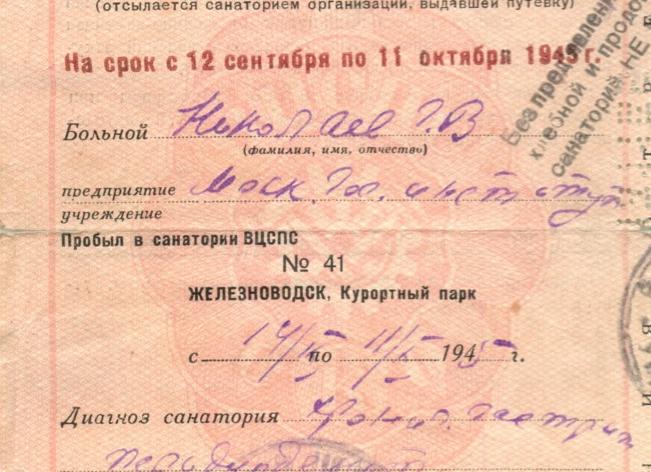 (отсылается санаторием организации, выдавшей путевку)
На срок с 12 сентября по 11 октября 1945 г.
Без
хлебной и продо
санаторий НЕ
Больной Николаев Г.В
(фамилия, имя, отчество)
предприятие Моск. Гос. институт
учреждение
Пробыл в санатории ВЦСПС
№ 41
ЖЕЛЕЗНОВОДСК, Курортный парк
с 14/IX по 11/X 1945 г.
Диагноз санатория Хронич. гастрит